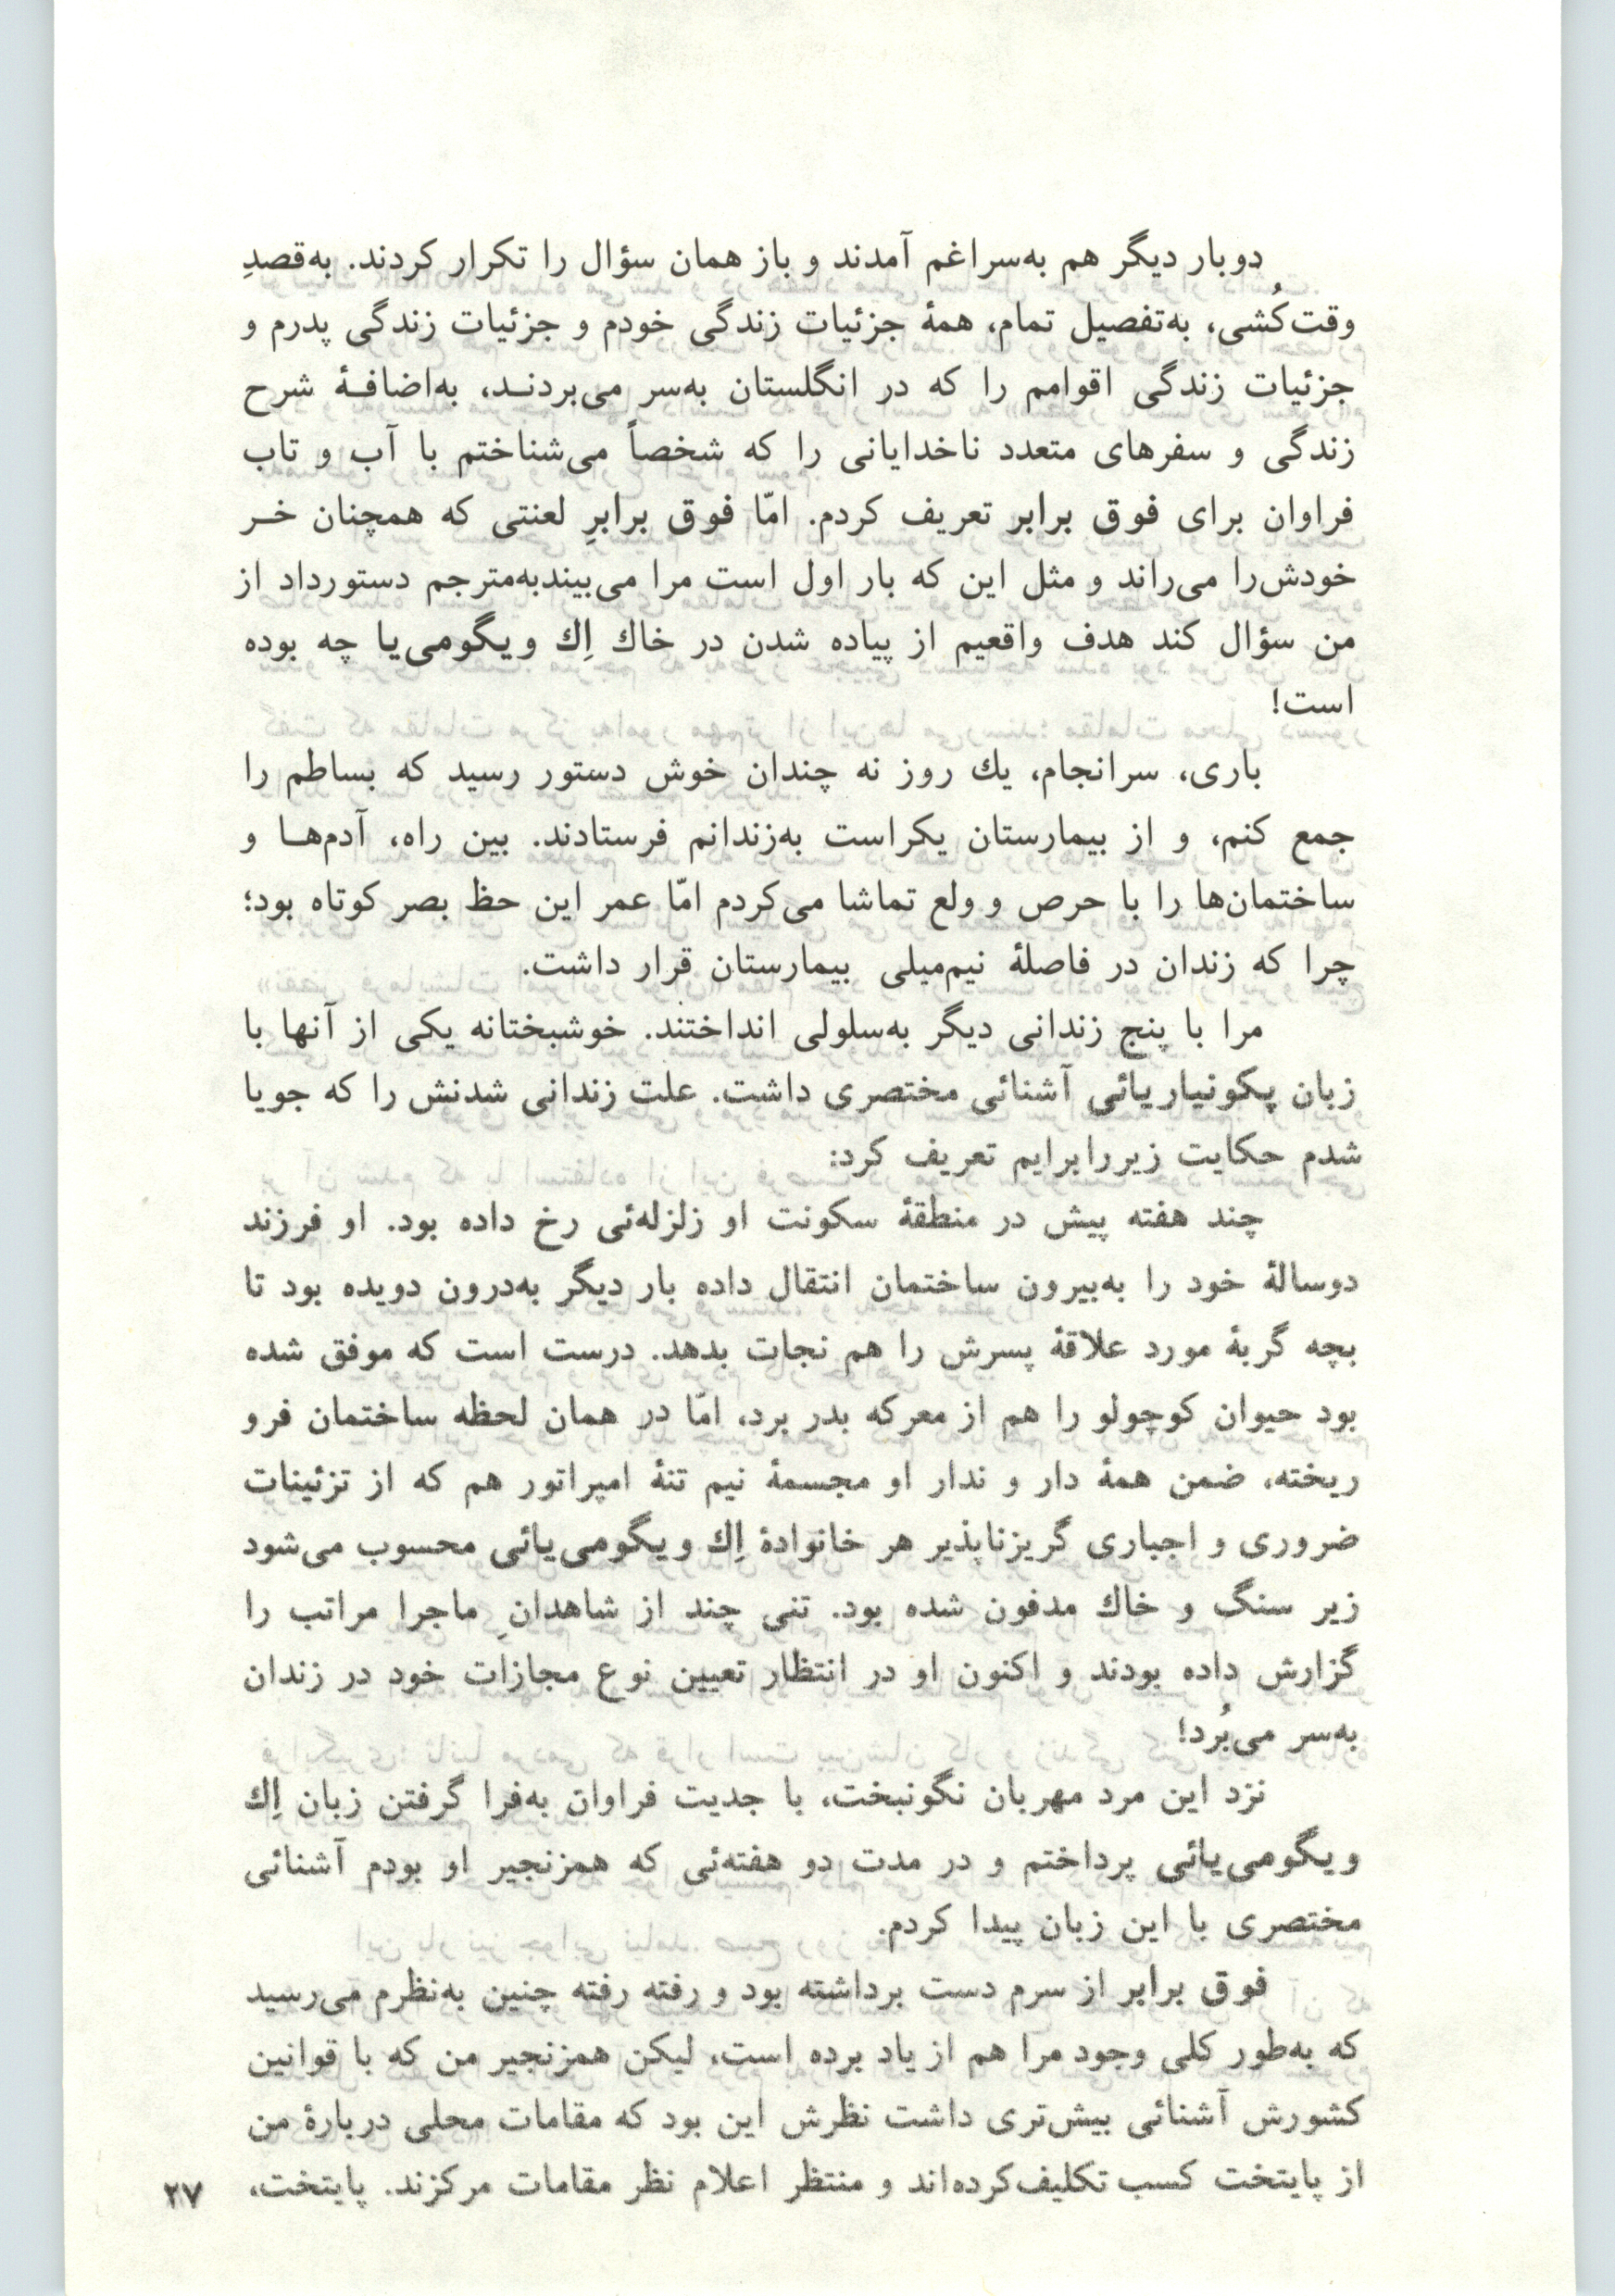 دوبار دیگر هم به‌سراغم آمدند و باز همان سؤال را تکرار کردند. به‌قصدِ
وقت‌کُشی، به‌تفصیل تمام، همهٔ جزئیات زندگی خودم و جزئیات زندگی پدرم و
جزئیات زندگی اقوامم را که در انگلستان به‌سر می‌بردنـد، به‌اضافـهٔ شرح
زندگی و سفرهای متعدد ناخدایانی را که شخصاً می‌شناختم با آب و تاب
فراوان برای فوق برابر تعریف کردم. امّا فوق برابرِ لعنتی که همچنان خـر
خودش‌را می‌راند و مثل این که بار اول است مرا می‌بیندبه‌مترجم دستورداد از
من سؤال کند هدف واقعیم از پیاده شدن در خاك اِك ویگومی‌یا چه بوده
است!
باری، سرانجام، یك روز نه چندان خوش دستور رسید که بساطم را
جمع کنم، و از بیمارستان یکراست به‌زندانم فرستادند. بین راه، آدم‌هـا و
ساختمان‌ها را با حرص و ولع تماشا می‌کردم امّا عمر این حظ بصر کوتاه بود؛
چرا که زندان در فاصلهٔ نیم‌میلی بیمارستان قرار داشت.
مرا با پنج زندانی دیگر به‌سلولی انداختند. خوشبختانه یکی از آنها با
زبان پکونیاریائی آشنائی مختصری داشت. علت زندانی شدنش را که جویا
شدم حکایت زیررابرایم تعریف کرد:
چند هفته پیش در منطقهٔ سکونت او زلزله‌ئی رخ داده بود. او فرزند
دوسالهٔ خود را به‌بیرون ساختمان انتقال داده بار دیگر به‌درون دویده بود تا
بچه گربهٔ مورد علاقهٔ پسرش را هم نجات بدهد. درست است که موفق شده
بود حیوان کوچولو را هم از معرکه بدر برد، امّا در همان لحظه ساختمان فرو
ریخته، ضمن همهٔ دار و ندار او مجسمهٔ نیم تنهٔ امپراتور هم که از تزئینات
ضروری و اجباری گریزناپذیر هر خانوادهٔ اِك ویگومی‌یائی محسوب می‌شود
زیر سنگ و خاك مدفون شده بود. تنی چند از شاهدانِ ماجرا مراتب را
گزارش داده بودند و اکنون او در انتظار تعیین نوع مجازات خود در زندان
به‌سر می‌بُرد!
نزد این مرد مهربان نگونبخت، با جدیت فراوان به‌فرا گرفتن زبان اِك
ویگومی‌یائی پرداختم و در مدت دو هفته‌ئی که همزنجیر او بودم آشنائی
مختصری با این زبان پیدا کردم.
فوق برابر از سرم دست برداشته بود و رفته رفته چنین به‌نظرم می‌رسید
که به‌طور کلی وجود مرا هم از یاد برده است، لیکن همزنجیر من که با قوانین
کشورش آشنائی بیش‌تری داشت نظرش این بود که مقامات محلی دربارهٔ من
از پایتخت کسب تکلیف‌کرده‌اند و منتظر اعلام نظر مقامات مرکزند. پایتخت،
۲۷